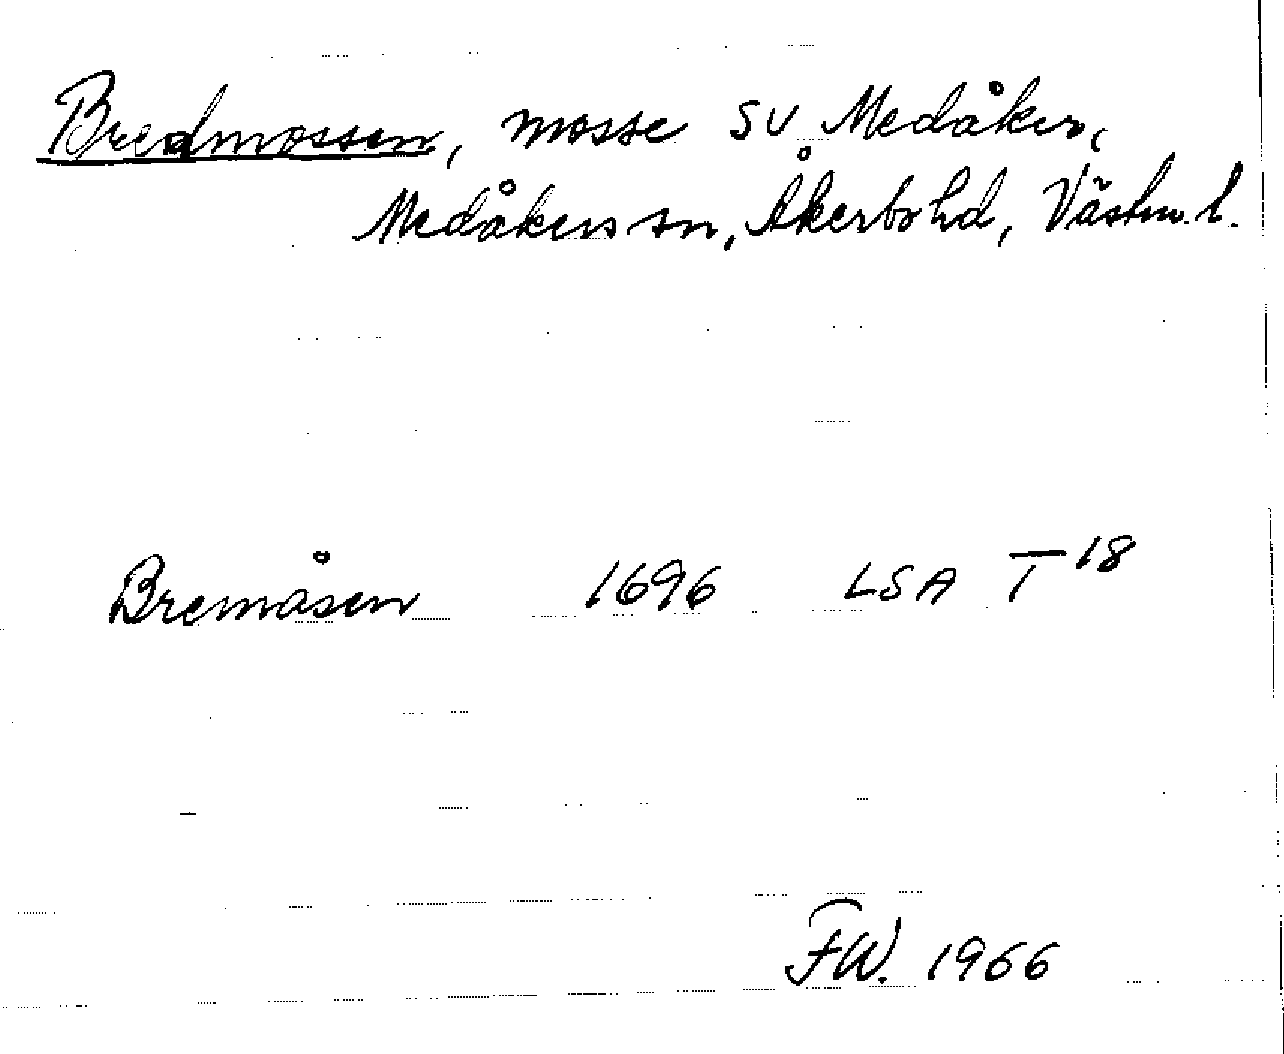 Bredmossen, mosse SV Medåker,
Medåkers sn, Åkerbo hd, Västm. l.
Bremåsen 1696 LSA T 18
FW. 1966